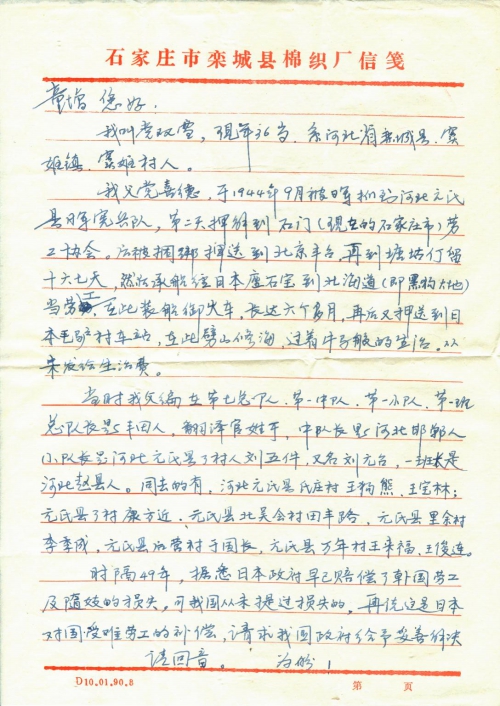 石家庄市栾城县棉织厂信笺
童增 您好.
我叫党双雪，现年36岁，系河北省栾城县，窦
妪镇，窦妪村人。
我父党喜德，于1944年9月被日军抓到河北元氏
县日军宪兵队，第二天押解到石门(现在的石家庄市)劳
工协会。后被捆绑押送到北京丰台，再到塘沽停留
十六七天，然后乘船经日本座石宝到北海道(即
当劳工，在此装船卸火车，长达六个多月，再后又押送到日
本 村车站，在此劈山修海，过着牛马般的生活。从
未发给生活费。
当时我父编在第七总队，第一中队，第一小队，第一班
总队长是丰田人，翻译官姓于，中队长是河北邯郸人
小队长是河北元氏县 村人刘五件，又名刘元台，一班长是
河北赵县人。同去的有，河北元氏县氏庄村王 熊，王宝林；
元氏县 村康方近，元氏县北吴会村田丰路，元氏县里余村
李季成，元氏县 营村于国长，元氏县万年村王来福，王俊连。
时隔49年，据悉日本政府早已赔偿了韩国劳工
及随妓的损失，可我国从未提过损失的，再说这是日本
对国受难劳工的补偿，请求我国政府给予妥善解决
请回音。 为盼！
D10.01.90.8
第 页